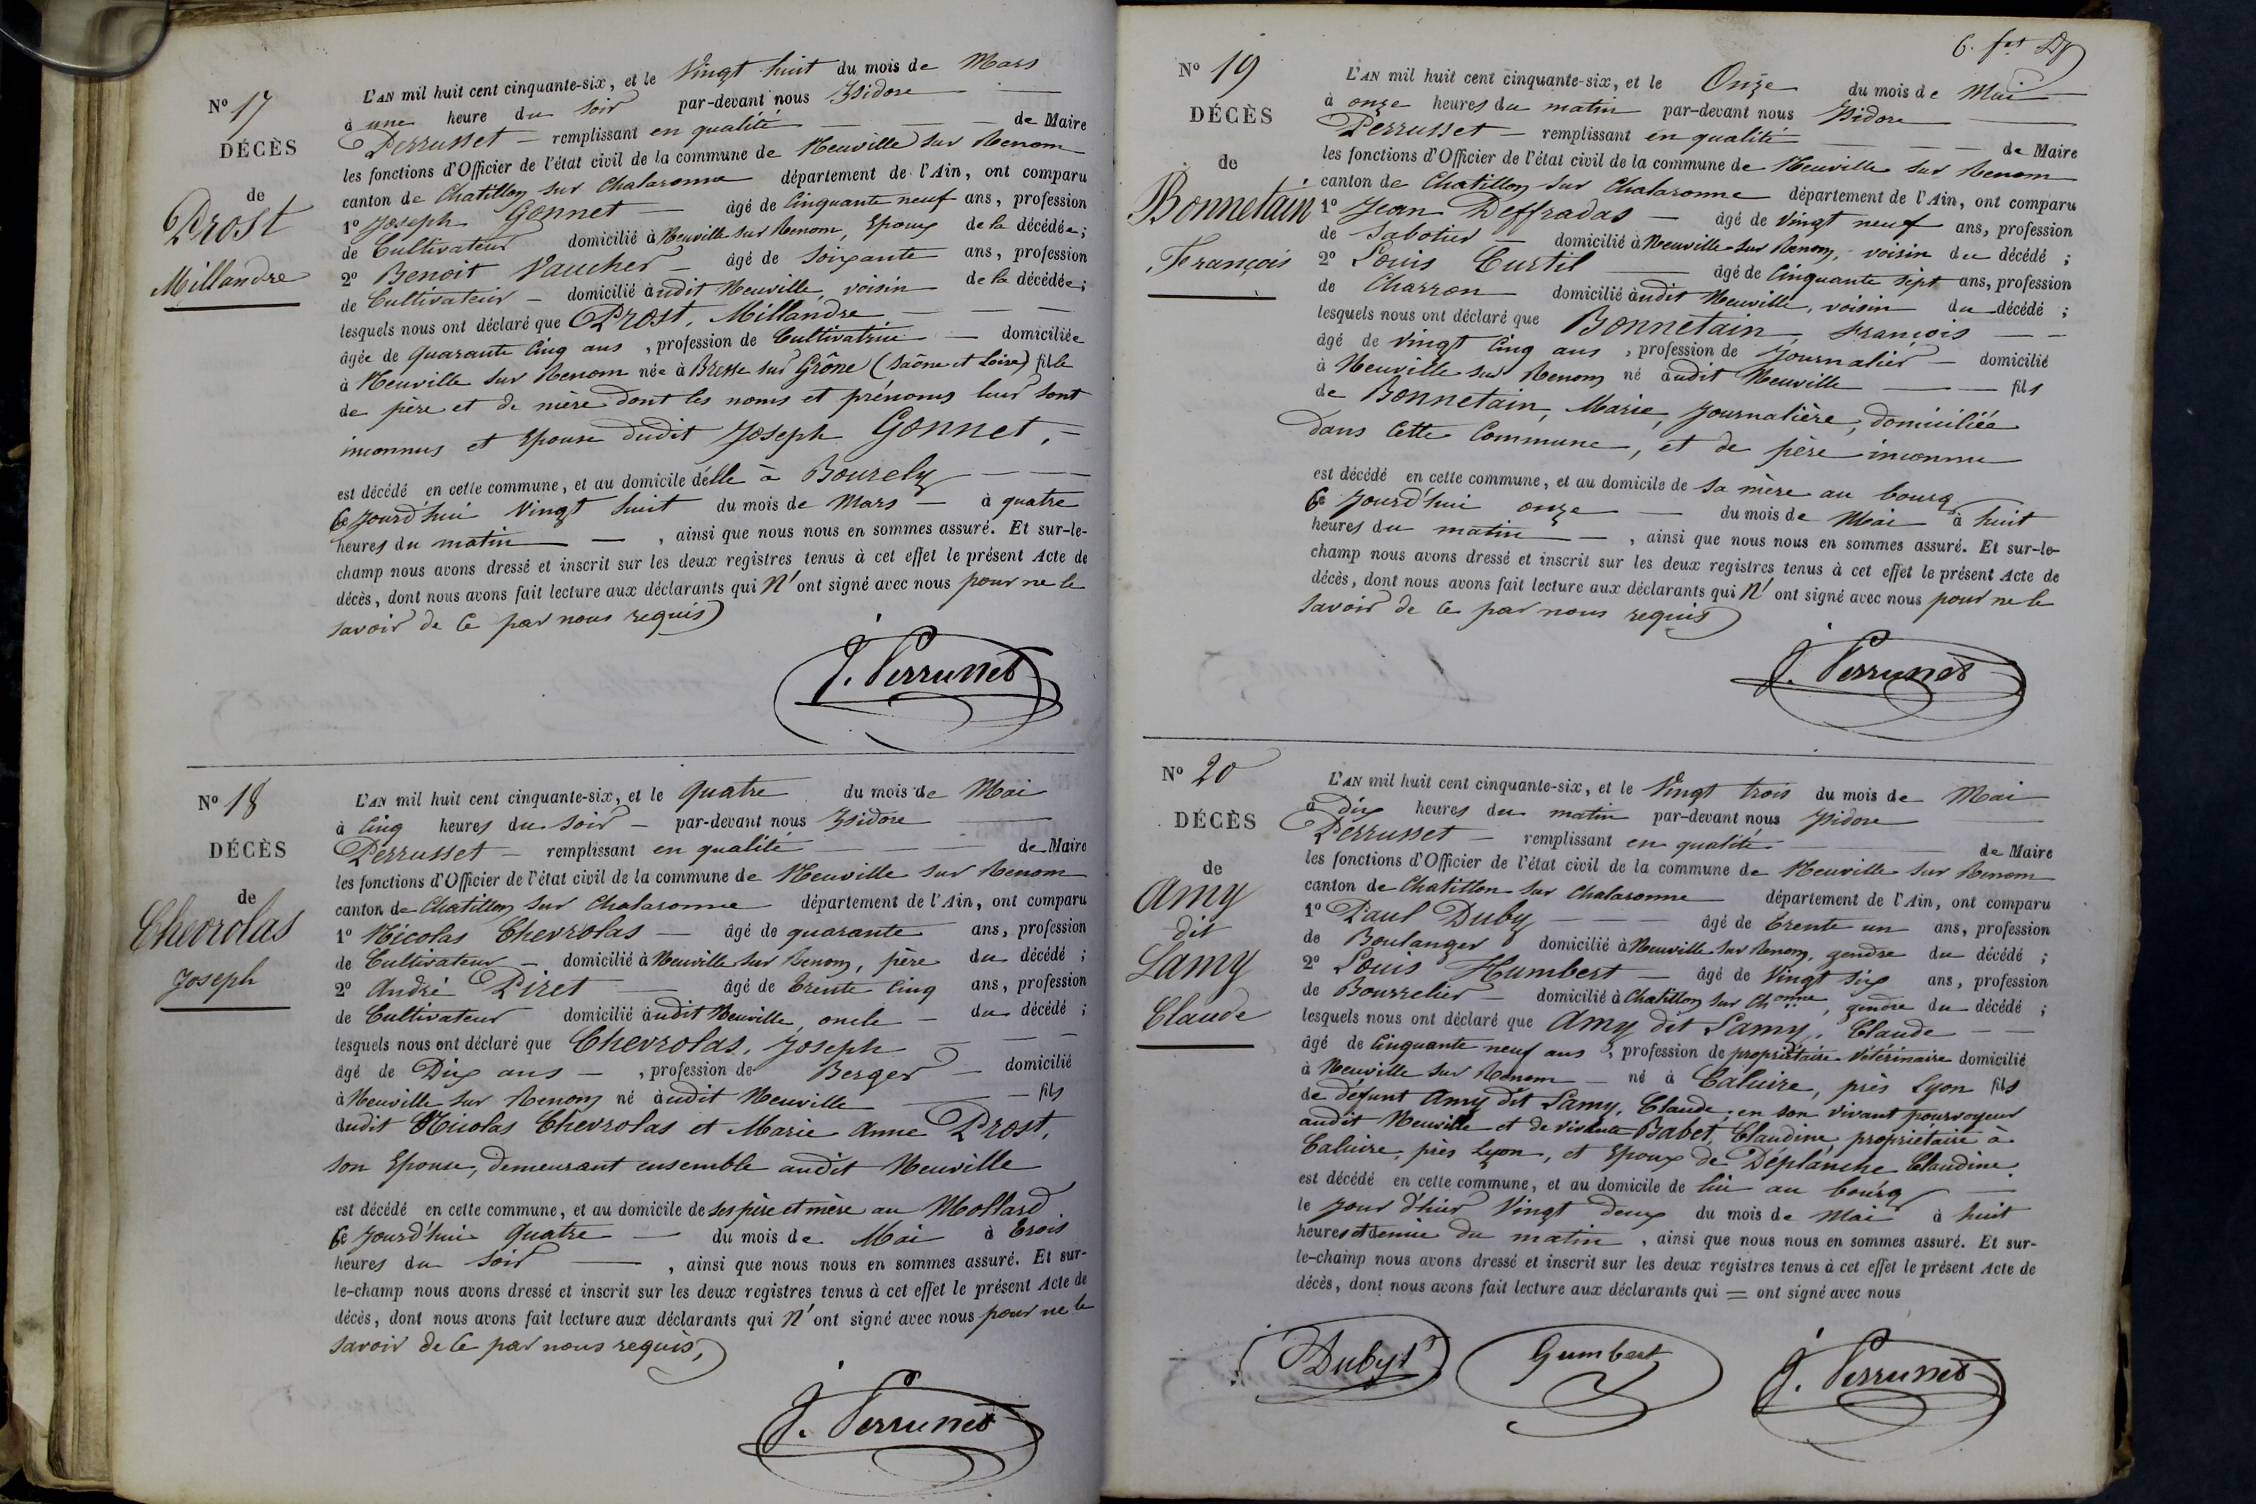 Nº 17
DÉCÈS
de
Prost
Millandre
L'AN mil huit cent cinquante-six, et le Vingt huit du mois de Mars
à une heure du soir par-devant nous Isidore
Perrusset — remplissant en qualité — de Maire
les fonctions d'Officier de l'état civil de la commune de Neuville sur Renom
canton de Chatillon sur Chalaronne département de l'Ain, ont comparu
1º Joseph Gonnet — âgé de Cinquante neuf ans, profession
de Cultivateur domicilié à Neuville sur Renom, Epoux de la décédée ;
2º Benoit Vaucher — âgé de soixante ans, profession
de Cultivateur — domicilié audit Neuville, voisin de la décédée ;
lesquels nous ont déclaré que Prost, Millandre — — —
âgée de quarante Cinq ans , profession de Cultivatrice — domiciliée
à Neuville sur Renom née à Bresse sur Grône (Saône et Loire) fille
de père et de mère dont les noms et prénoms leur sont
inconnus et Epouse dudit Joseph Gonnet, —
est décédé en cette commune, et au domicile d'elle à Bourely — — —
Ce jourd'hui Vingt huit du mois de Mars — à quatre
heures du matin — , ainsi que nous nous en sommes assuré. Et sur-le-
champ nous avons dressé et inscrit sur les deux registres tenus à cet effet le présent Acte de
décès, dont nous avons fait lecture aux déclarants qui N' ont signé avec nous pour ne le
savoir de ce par nous requis
J. Perrusset
Nº 18
DÉCÈS
de
Chevrolas
Joseph
L'AN mil huit cent cinquante-six, et le quatre du mois de Mai
à Cinq heures du soir — par-devant nous Isidore
Perrusset — remplissant en qualité — de Maire
les fonctions d'Officier de l'état civil de la commune de Neuville sur Renom
canton de Chatillon sur Chalaronne département de l'Ain, ont comparu
1º Nicolas Chevrolas — âgé de quarante ans, profession
de Cultivateur — domicilié à Neuville sur Renom, père du décédé ;
2º André Piret — âgé de Trente Cinq ans, profession
de Cultivateur domicilié audit Neuville, oncle — du décédé ;
lesquels nous ont déclaré que Chevrolas, Joseph — — —
âgé de Dix ans — , profession de Berger — domicilié
à Neuville sur Renom né audit Neuville — fils
dudit Nicolas Chevrolas et Marie Anne Prost,
son Epouse, demeurant ensemble audit Neuville
est décédé en cette commune, et au domicile de ses père et mère au Mollard
Ce jourd'hui quatre — du mois de Mai à Trois
heures du soir — , ainsi que nous nous en sommes assuré. Et sur-
le-champ nous avons dressé et inscrit sur les deux registres tenus à cet effet le présent Acte de
décès, dont nous avons fait lecture aux déclarants qui N' ont signé avec nous pour ne le
savoir de ce par nous requis,
J. Perrusset
Nº 19
DÉCÈS
de
Bonnetain
François
L'AN mil huit cent cinquante-six, et le Onze du mois de Mai
à onze heures du matin par-devant nous Isidore
Perrusset — remplissant en qualité — de Maire
les fonctions d'Officier de l'état civil de la commune de Neuville sur Renom
canton de Chatillon sur Chalaronne département de l'Ain, ont comparu
1º Jean Deffradas — âgé de Vingt neuf ans, profession
de Sabotier — domicilié à Neuville sur Renom, voisin du décédé ;
2º Louis Curtil — âgé de Cinquante sept ans, profession
de Charron domicilié audit Neuville, voisin du décédé ;
lesquels nous ont déclaré que Bonnetain, François — —
âgé de Vingt Cinq ans , profession de Journalier — domicilié
à Neuville sur Renom né audit Neuville — — fils
de Bonnetain, Marie, Journalière, domiciliée
dans cette Commune, et de père inconnu
est décédé en cette commune, et au domicile de sa mère au bourg
Ce jourd'hui onze — du mois de Mai à huit
heures du matin — , ainsi que nous nous en sommes assuré. Et sur-le-
champ nous avons dressé et inscrit sur les deux registres tenus à cet effet le présent Acte de
décès, dont nous avons fait lecture aux déclarants qui N' ont signé avec nous pour ne le
savoir de ce par nous requis
J. Perrusset
Nº 20
DÉCÈS
de
Amy
dit
Lamy
Claude
L'AN mil huit cent cinquante-six, et le Vingt trois du mois de Mai
à Dix heures du matin par-devant nous Isidore
Perrusset — remplissant en qualité — de Maire
les fonctions d'Officier de l'état civil de la commune de Neuville sur Renom
canton de Chatillon sur Chalaronne département de l'Ain, ont comparu
1º Paul Duby — — âgé de Trente un ans, profession
de Boulanger domicilié à Neuville sur Renom, gendre du décédé ;
2º Louis Humbert — âgé de Vingt six ans, profession
de Bourrelier — domicilié à Chatillon sur Chonne, gendre du décédé ;
lesquels nous ont déclaré que Amy dit Lamy, Claude — —
âgé de Cinquante neuf ans , profession de propriétaire Vétérinaire domicilié
à Neuville sur Renom — né à Caluire, près Lyon fils
de défunt Amy dit Lamy, Claude, en son vivant pourvoyeur
audit Neuville et de vivante Babet, Claudine, propriétaire à
Caluire, près Lyon, et Epoux de Déplanche Claudine.
est décédé en cette commune, et au domicile de lui au bourg —
le jour d'hier Vingt deux du mois de Mai à huit
heures et demie du matin , ainsi que nous nous en sommes assuré. Et sur-
le-champ nous avons dressé et inscrit sur les deux registres tenus à cet effet le présent Acte de
décès, dont nous avons fait lecture aux déclarants qui = ont signé avec nous
Duby P
Gumbert
J. Perrusset